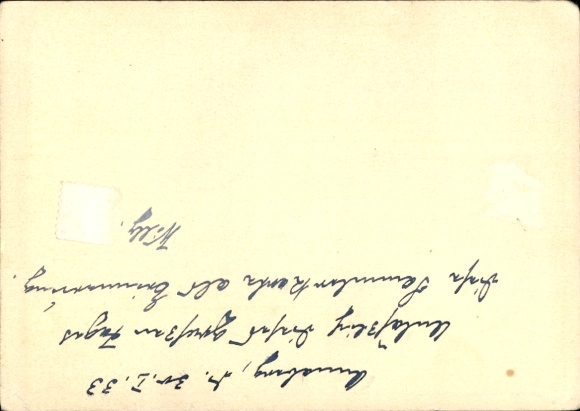 Annaberg, d. 30.I.33
Anläßlich dieses großen Tages
diese Karte als Erinnerung.
Willy.